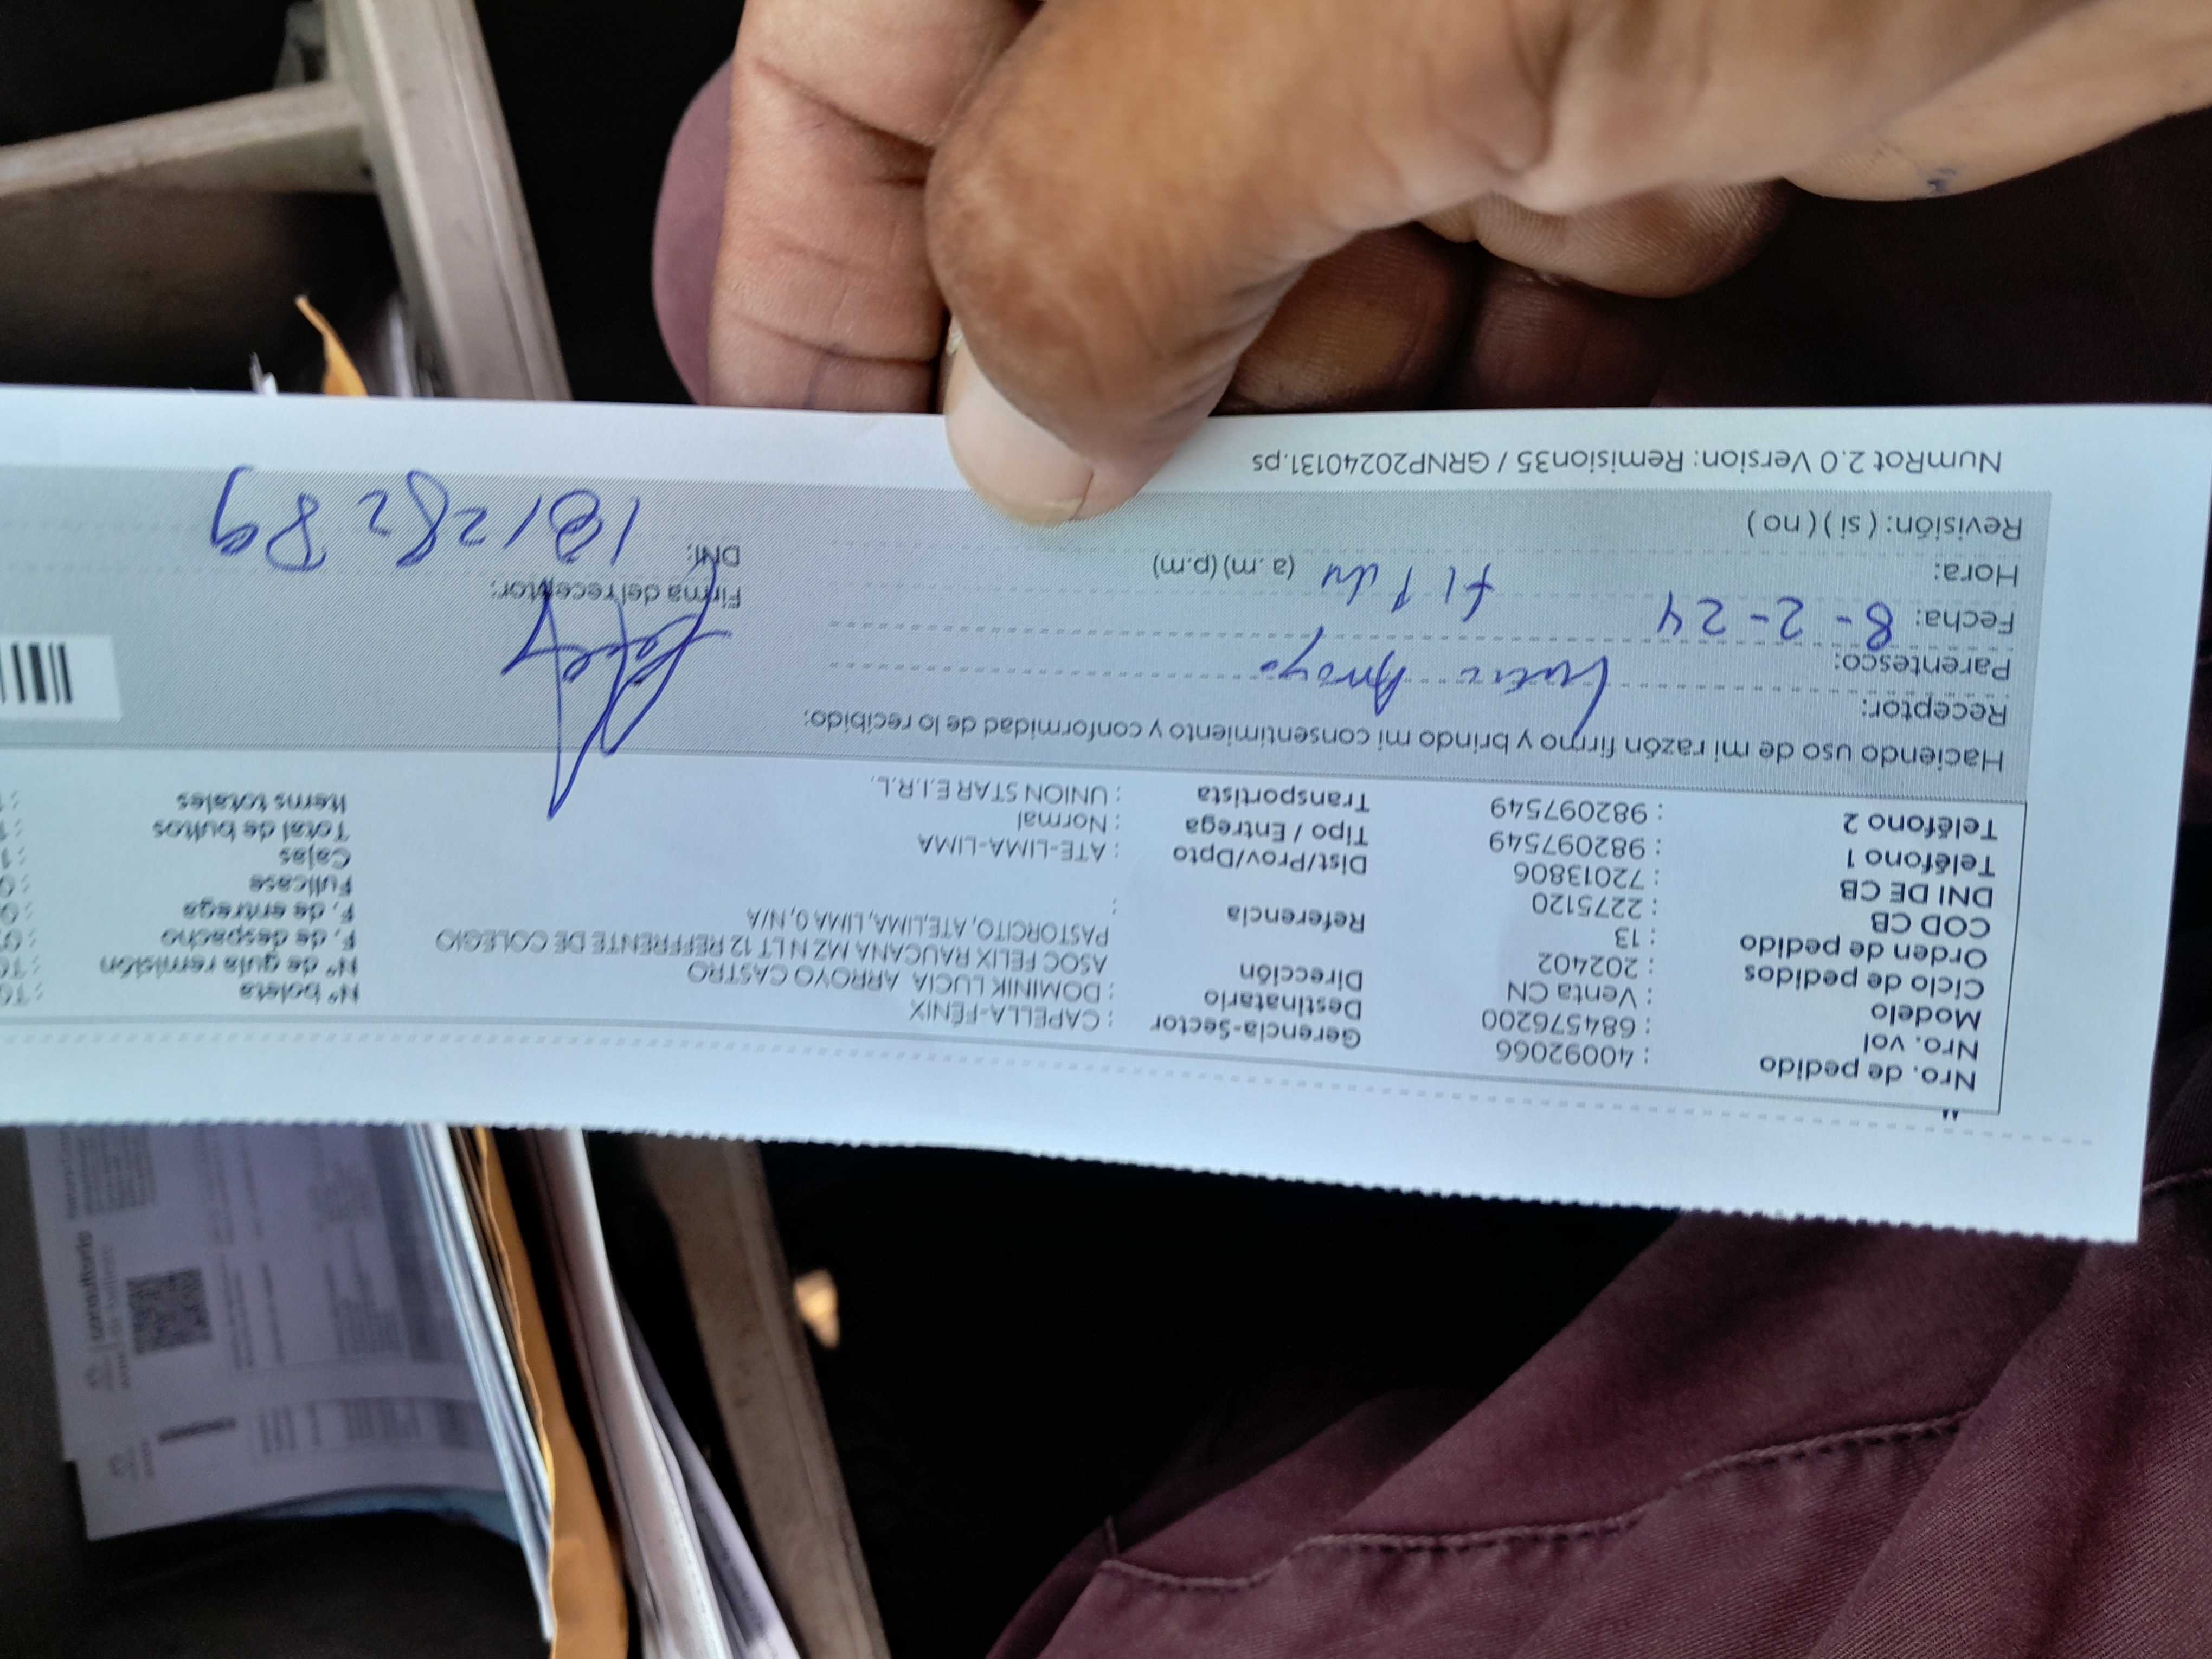 Nro. de pedido : 40092066 Gerencia-Sector : CAPELLA-FÉNIX Nº boleta
Nro. vol : 684576200 Destinatario : DOMINIK LUCIA ARROYO CASTRO Nº de guía remisión
Modelo : Venta CN Dirección ASOC FELIX RAUCANA MZ N LT 12 REFFRENTE DE COLEGIO F. de despacho
Ciclo de pedidos : 202402 PASTORCITO, ATE,LIMA, LIMA 0, N/A F. de entrega
Orden de pedido : 13 Referencia : Fullcase
COD CB : 2275120 Dist/Prov/Dpto : ATE-LIMA-LIMA Cajas
DNI DE CB : 72013806 Tipo / Entrega : Normal Total de bultos
Teléfono 1 : 982097549 Transportista : UNION STAR E.I.R.L. Items totales
Teléfono 2 : 982097549
Haciendo uso de mi razón firmo y brindo mi consentimiento y conformidad de lo recibido:
Receptor: Arroyo
Parentesco:
Fecha: 8-2-24 Firma del receptor:
Hora: (a.m) (p.m) DNI:
Revisión: ( si ) ( no )
NumRot 2.0 Version: Remision35 / GRNP20240131.ps